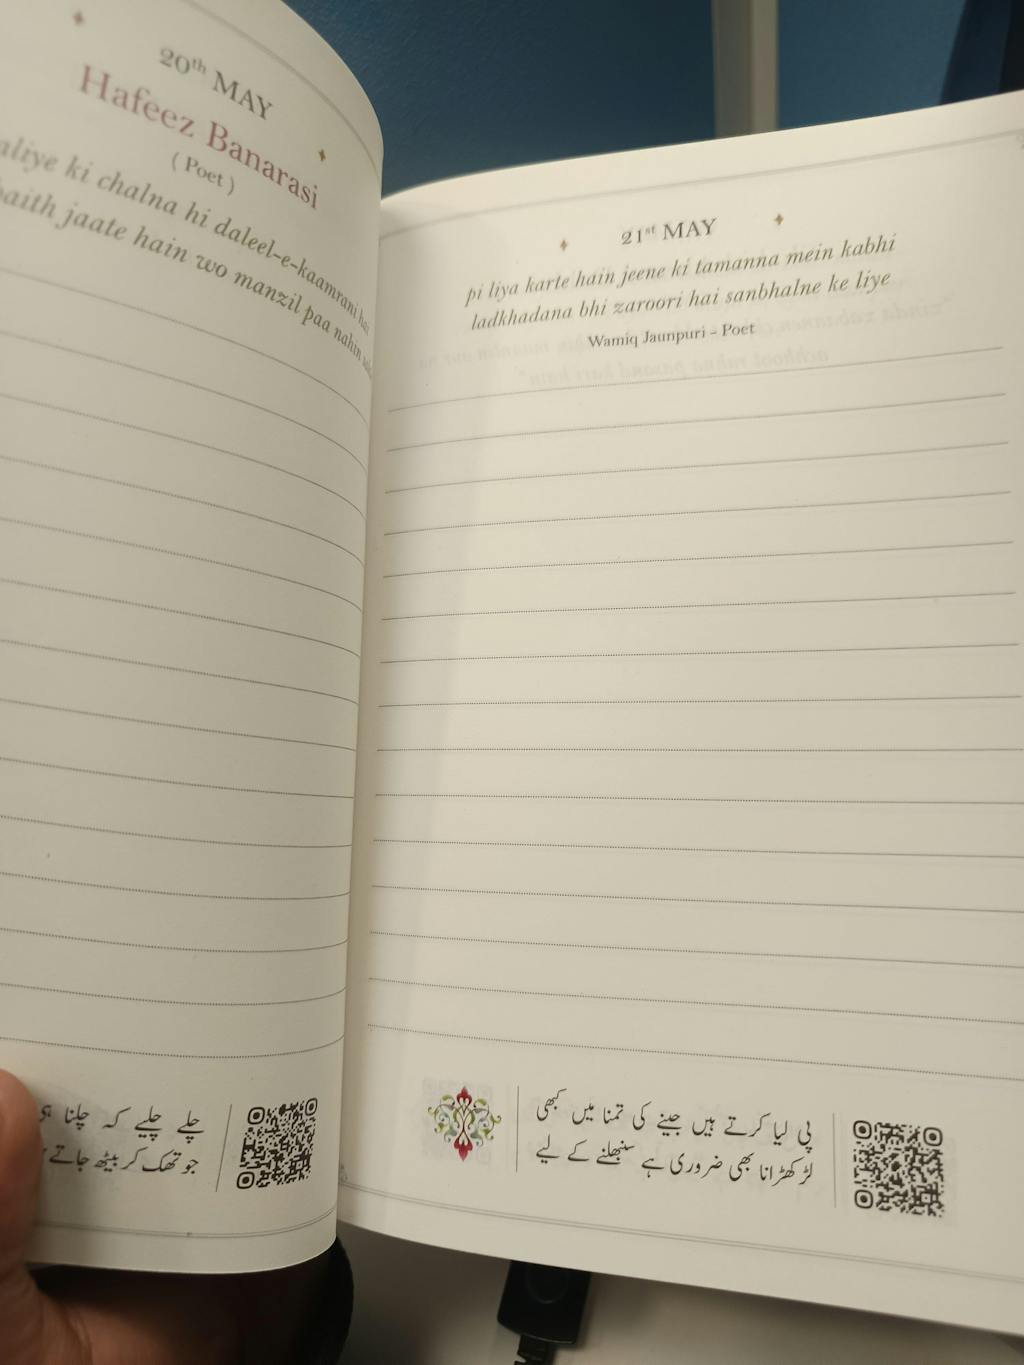 20th MAY
Hafeez Banarasi
( Poet )
ki chalna hi daleel-e-kaamrani hai
baith jaate hain wo manzil paa nahin
چلے چلیے کہ چلنا ہی
جو تھک کر بیٹھ جاتے
21st MAY
pi liya karte hain jeene ki tamanna mein kabhi
ladkhadana bhi zaroori hai sanbhalne ke liye
Wamiq Jaunpuri - Poet
پی لیا کرتے ہیں جینے کی تمنا میں کبھی
لڑکھڑانا بھی ضروری ہے سنبھلنے کے لیے